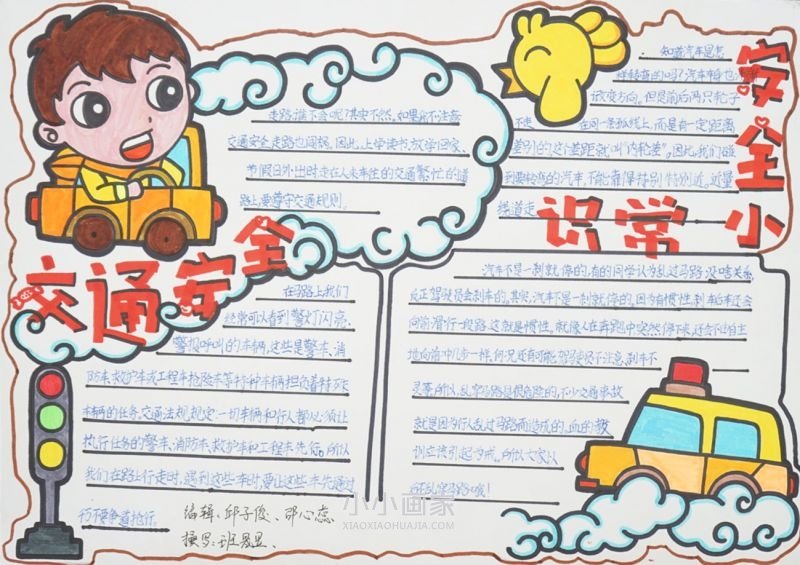 交通安全
安全小
识常
走路,谁不会呢?其实不然。如果你不注意
交通安全,走路也闯祸。因此,上学读书,放学回家、
节假日外出时走在人来车往的交通繁忙的道
路上,要遵守交通规则。
知道汽车是怎
样转弯的吗?汽车车身也
改变方向。但是前后两只轮子
不走 在同一条弧线上,而是有一定距离
差别的,这个差距就叫"内轮差"。因此,我们碰
到要转弯的汽车,不能靠得特别特别近,近量
绕道走
在马路上我们
经常可以看到警灯闪亮、
警报呼叫的车辆,这些是警车、消
防车、救护车或工程车抢险车等特种车辆担负着特殊
车辆的任务。交通法规规定:一切车辆和行人都必须让
执行任务的警车、消防车、救护车和工程车先行。所以
我们在路上行走时,遇到这些车时,要让这些车先通过
切不要争道抢行。
汽车不是一刹就停的,有的同学认为乱过马路没啥关系,
反正驾驶员会刹车的。其实,汽车不是一刹就停的,因为有惯性,刹车后车还会
向前滑行一段路,这就是惯性。就像人在奔跑中突然停下来,还会不由自主
地向前冲几步一样。何况还有可能驾驶员不注意、刹车不
灵等,所以,乱穿马路是很危险的,不少交通事故
就是因为行人乱过马路而造成的。血的教
训应该引起为戒。所以大家以
后别乱穿马路哦!
编辑:邱子俊、邵心蕊
小小画家
XIAOXIAOHUAJIA.COM